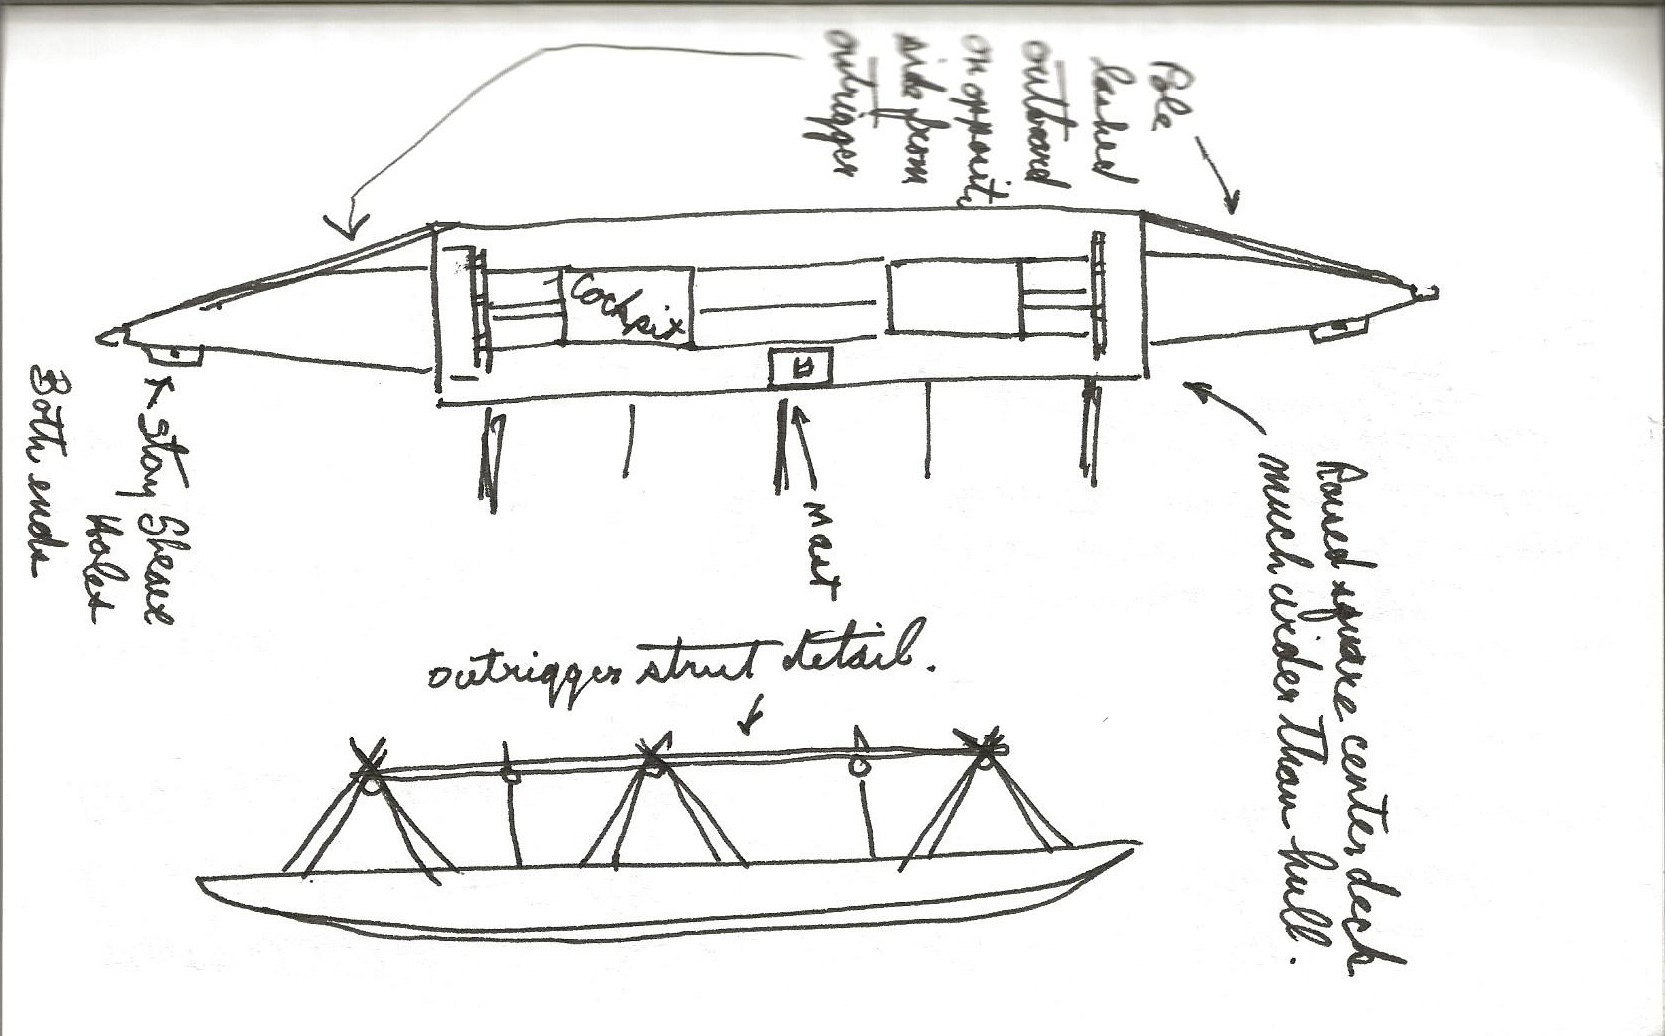 Pole
lashed
outboard
on opposit
side from
outrigger
Cockpit
Mast
Stay Sheave
Holes
Both ends
Raised square center deck
much wider than hull.
outrigger strut detail.